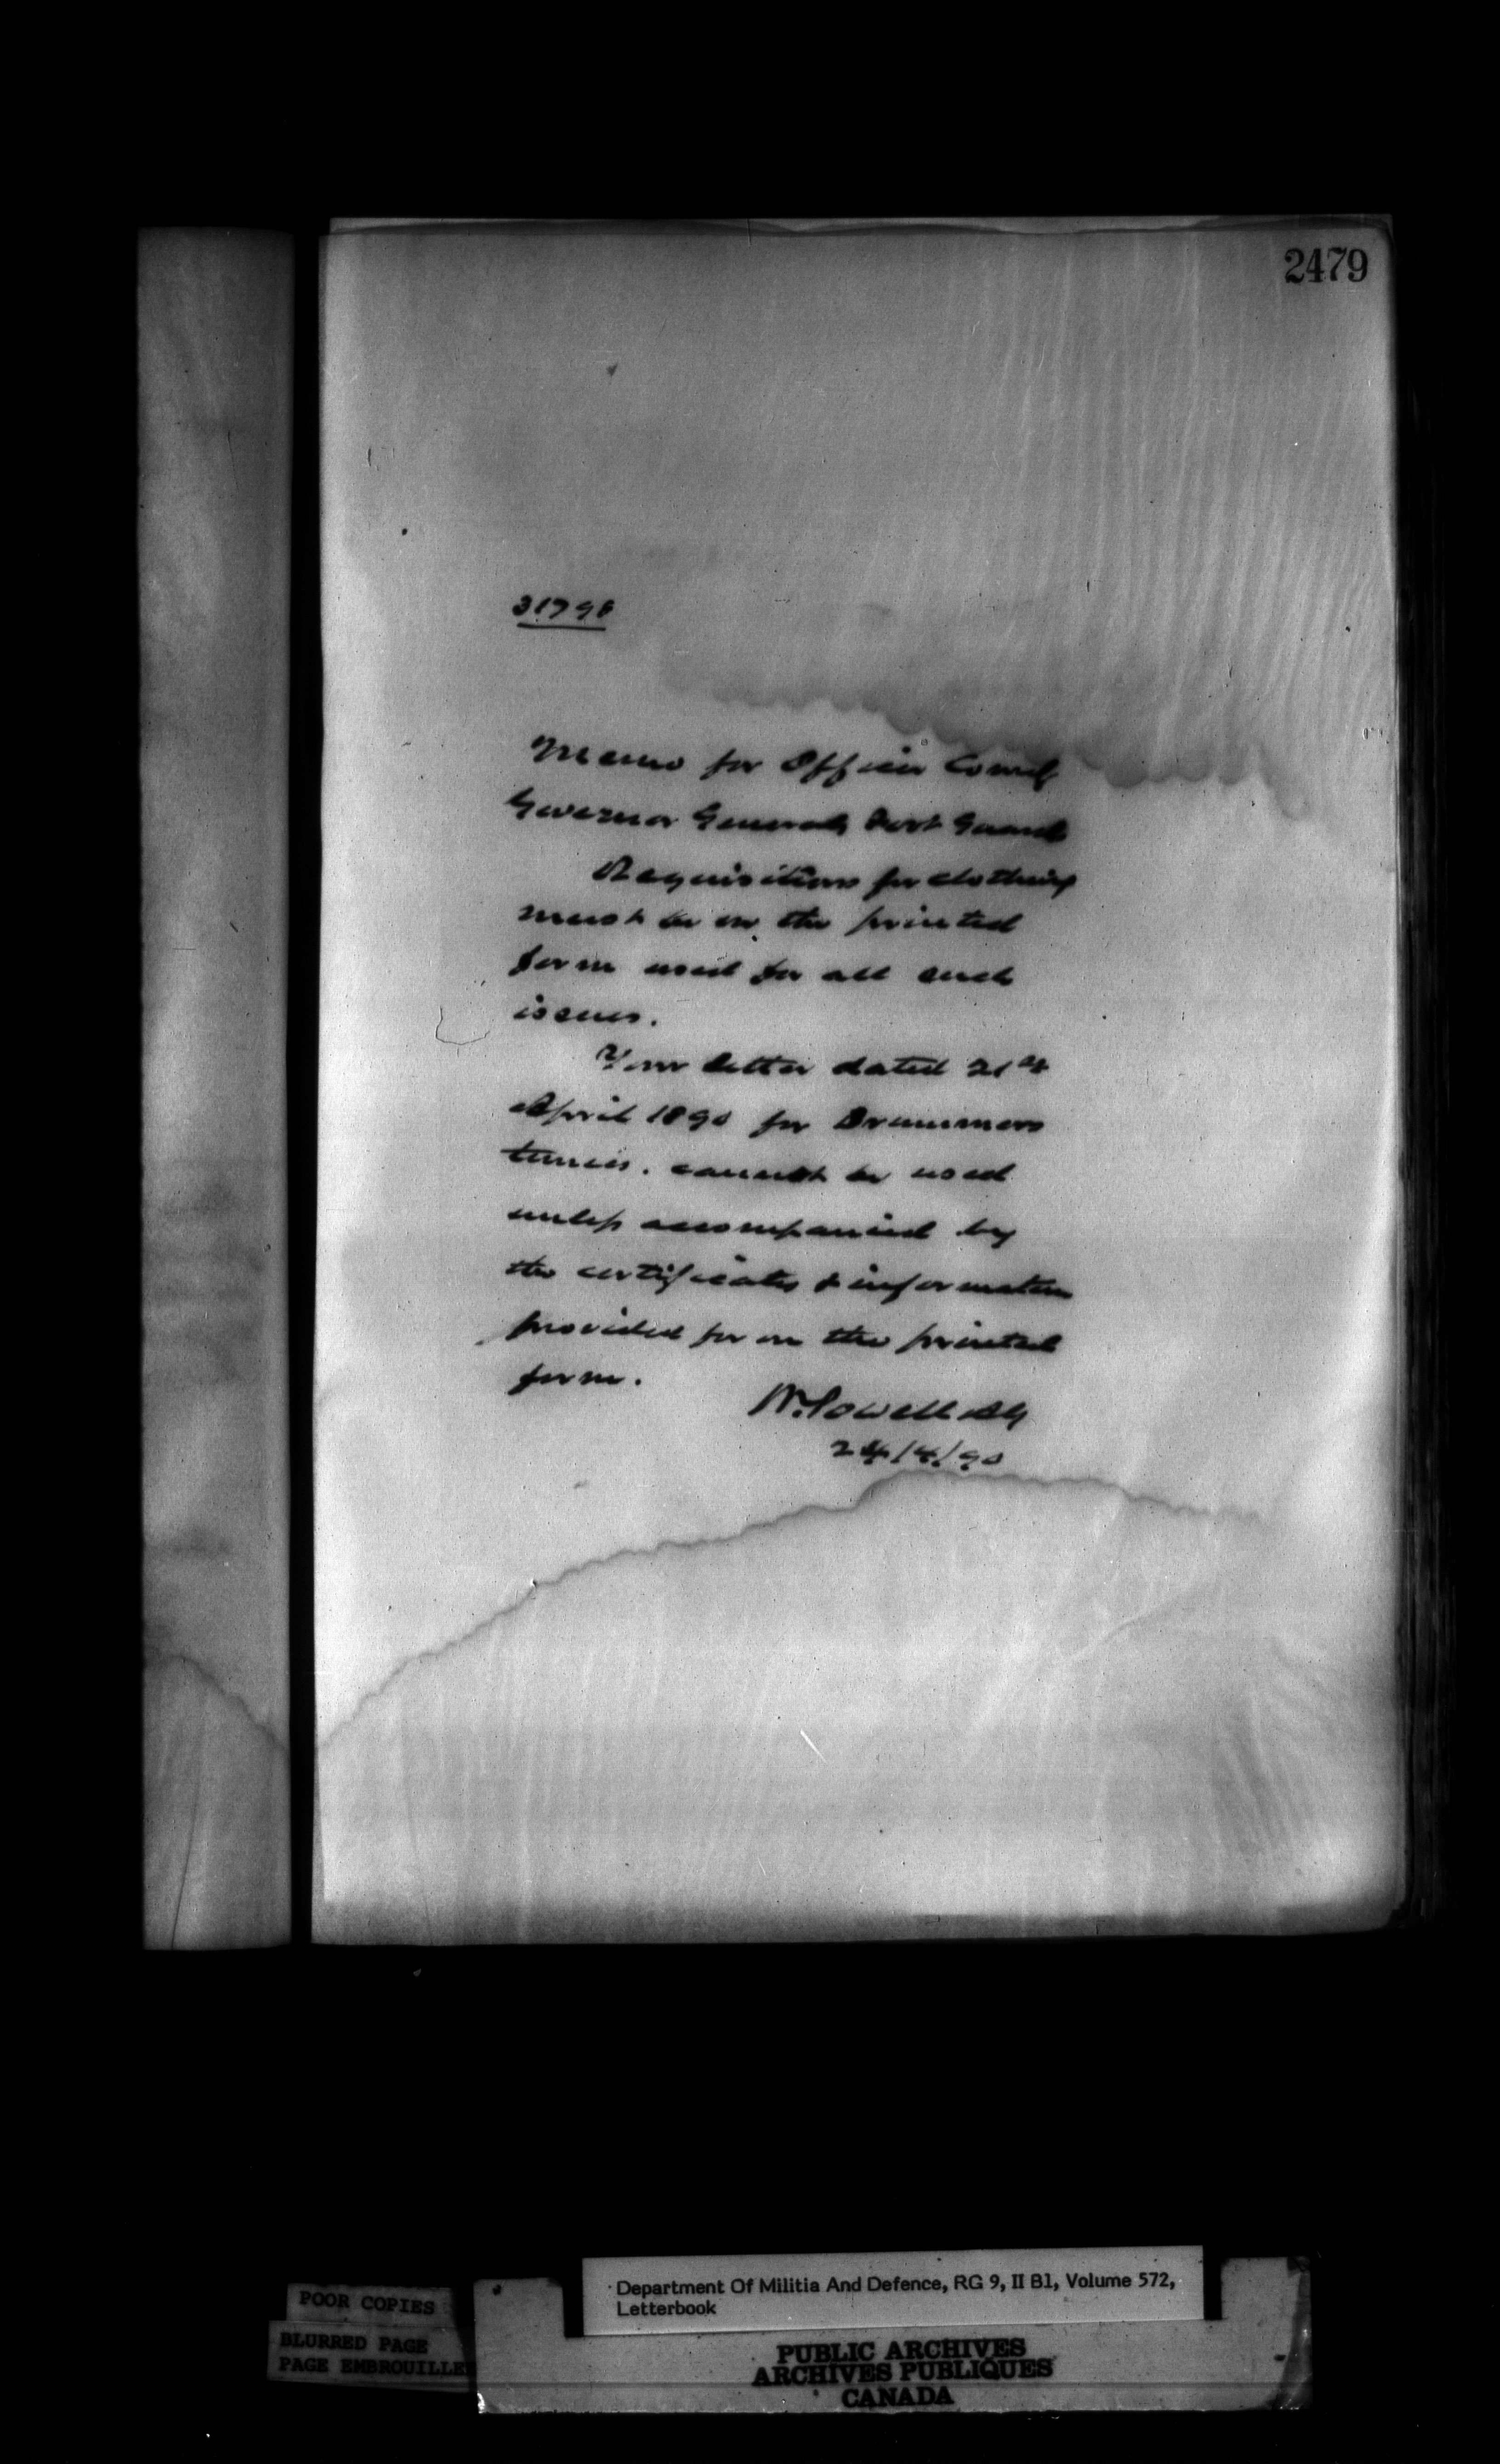 2479
31798
Memo for Officer Comdg
Governor Generals Foot Guard
Requisitions for clothing
must be on the printed
form used for all such
issues.
Your letter dated 21st
April 1890 for Drummers
tunics. cannot be used
unless accompanied by
the certificates & information
provided for on the printed
form.
W. Powell AG
24/4/90
Department Of Militia And Defence, RG 9, II B1, Volume 572,
Letterbook
POOR COPIES
BLURRED PAGE
PAGE EMBROUILLEE
PUBLIC ARCHIVES
ARCHIVES PUBLIQUES
CANADA